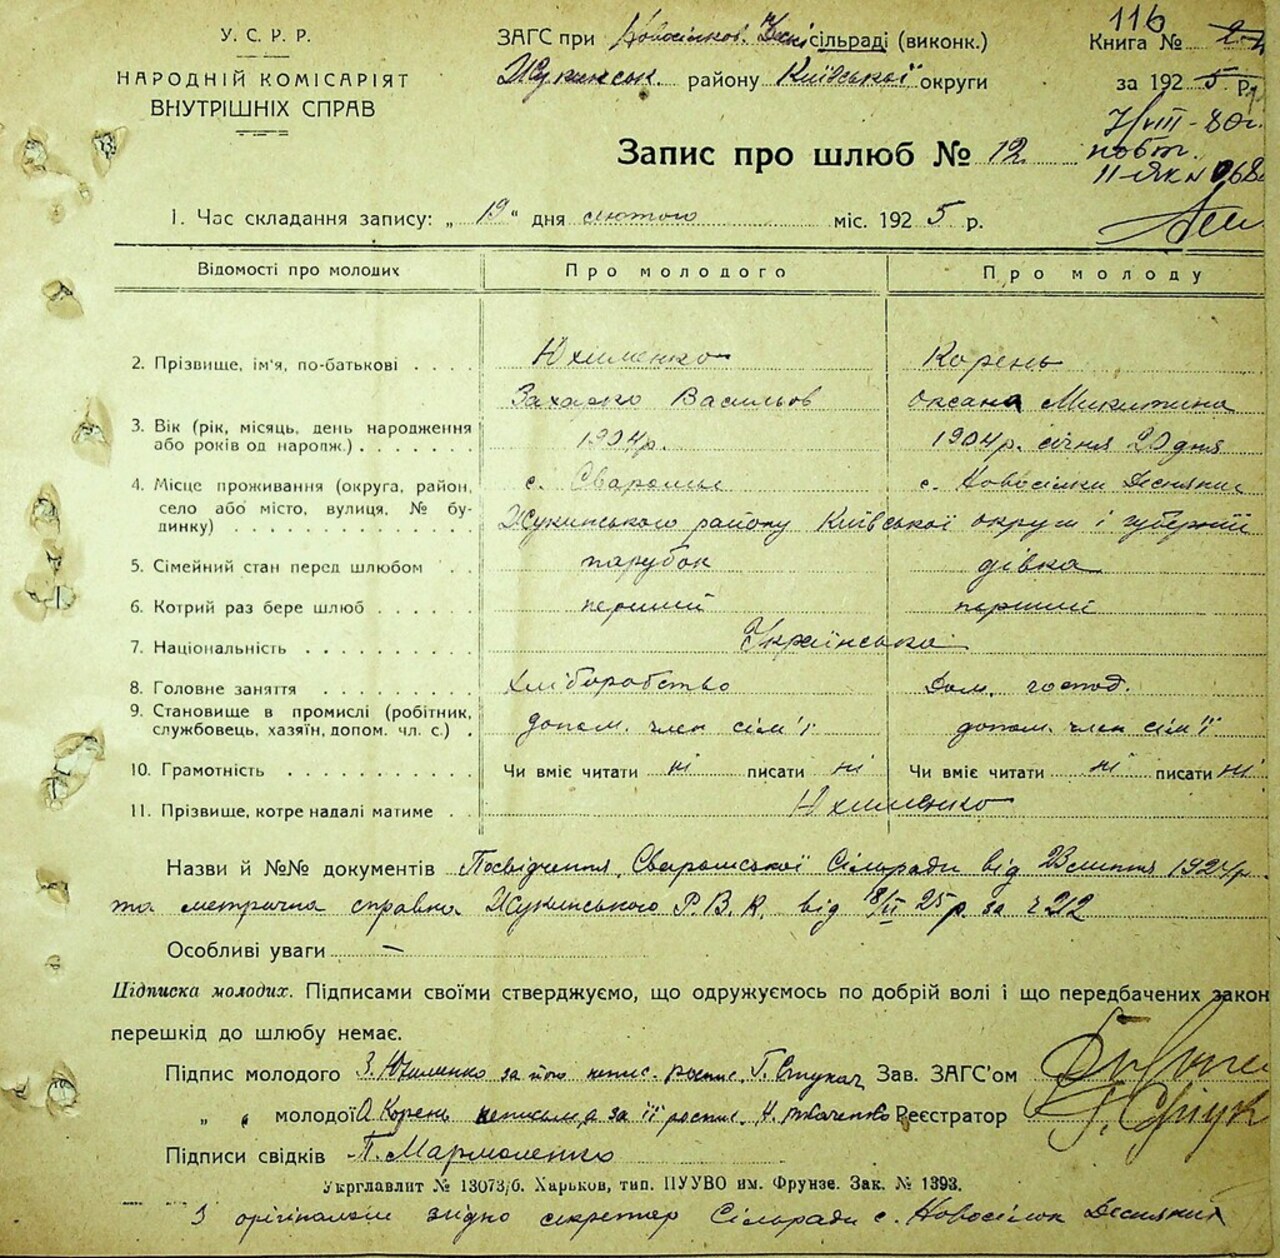 116
У. С. Р. Р.
НАРОДНІЙ КОМІСАРІЯТ
ВНУТРІШНІХ СПРАВ
ЗАГС при Новосілков. Десн сільраді (виконк.)
Жукинськ. району Київської округи
Книга №
за 1925 р.
Запис про шлюб № 12
1. Час складання запису: „19“ дня лютого міс. 1925 р.
Відомості про молодих
Про молодого
Про молоду
2. Прізвище, ім'я, по-батькові . . . . Юхименко Корень
Захарко Васильов Оксана Микитина
3. Вік (рік, місяць, день народження
або років од народж.) . . . . . . 1904р. 1904р. січня 20 дня
4. Місце проживання (округа, район, с. Сваромье с. Новосілки Деснянск
село або місто, вулиця, № бу-
динку) . . . . . . . . . . . . Жукинського району Київської округи і губернії
5. Сімейний стан перед шлюбом . . парубок дівка
6. Котрий раз бере шлюб . . . . . . перший перший
7. Національність . . . . . . . . . . Українська
8. Головне заняття . . . . . . . . . Хліборобство Дом. господ.
9. Становище в промислі (робітник,
службовець, хазяїн, допом. чл. с.) . допом. член сім'ї допом. член сім'ї
10. Грамотність . . . . . . . . . . . Чи вміє читати ні писати ні Чи вміє читати ні писати ні
11. Прізвище, котре надалі матиме . . Юхименко
Назви й №№ документів Посвідчення Сваромської Сільради від 23 1924р.
та метрична справка Жукинського Р.В.К. від 18/II 25 р. за ч 212
Особливі уваги —
Підписка молодих. Підписами своїми стверджуємо, що одружуємось по добрій волі і що передбачених закон
перешкід до шлюбу немає.
Підпис молодого З. Юхименко за його непис. роспис. Г. Стукач Зав. ЗАГС'ом
„ „ молодої О. Корень неписьм а за її роспис. Н. Ткаченко Реєстратор
Підписи свідків П. Мармоленко
Укрглавлит № 13073/б. Харьков, тип. ПУУВО им. Фрунзе. Зак. № 1393.
З оріґіналом згідно секретар Сільради с. Новосілок Деснянск